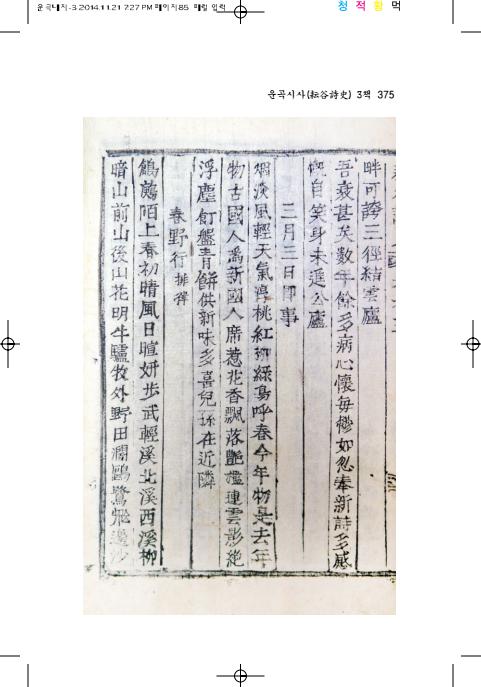 운곡대지-3 2014.11.21 7:27 PM 페이지85 매일 입력
청 적 황 먹
운곡시사(耘谷詩史) 3책 375
畔可誇三徑結雲廬
吾衰甚矣數年餘多病心懷每鬱如忽奉新詩多感
慨自笑身未遂公廬
三月三日即事
烟淡風輕天氣淳桃紅柳綠鳥呼春今年物是去年
物古國人爲新國人席惹花香飄落艶檻連雲影絶
浮塵飣盤青餅供新味多喜兒孫在近隣
春野行 排律
鶺鴒陌上春初晴風日暄姸步武輕溪北溪西溪柳
暗山前山後山花明牛驢牧外野田濶鷗鷺飛邊沙